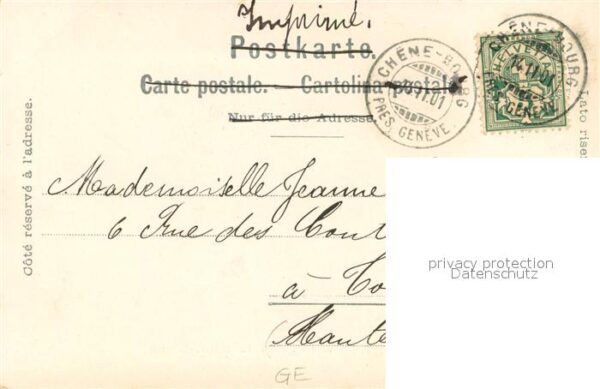 Imprimé.
Postkarte.
Carte postale. Cartolina postale
Nur für die Adresse
CHÊNE-BOURG
PRÈS GENÈVE
CHÊNE-BOURG
14.XI.01
GENÈVE
HELVETIA
Côté réservé à l'adresse.
Lato rise
Mademoiselle Jeanne
6 Rue des
à
Haute
privacy protection
Datenschutz
GE